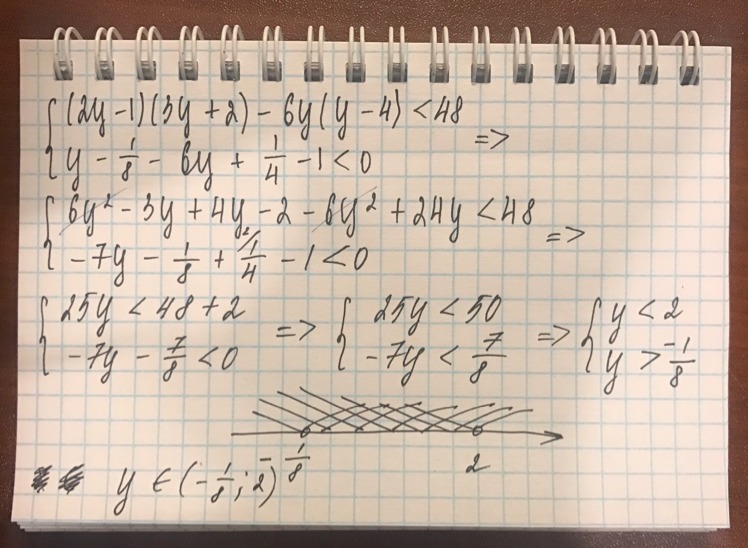 { (2y - 1)(3y + 2) - 6y(y - 4) < 48
{ y - 1/8 - 6y + 1/4 - 1 < 0 =>
{ 6y² - 3y + 4y - 2 - 6y² + 24y < 48
{ - 7y - 1/8 + 1/4 - 1 < 0 =>
{ 25y < 48 + 2 => { 25y < 50 => { y < 2
{ - 7y - 7/8 < 0 { - 7y < 7/8 { y > -1/8
-1/8 2
y ∈ (-1/8; 2)